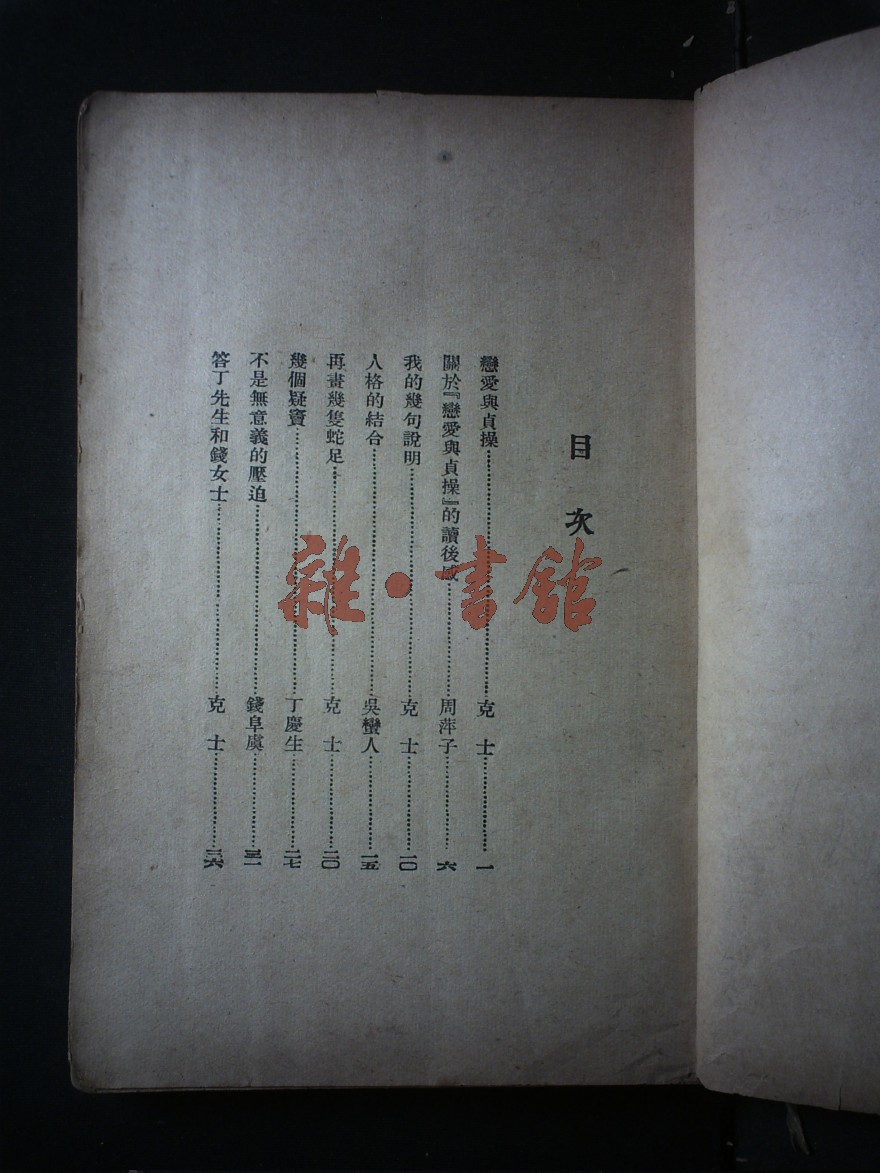 目次
戀愛與貞操……克士……一
關於『戀愛與貞操』的讀後感……周萍子……六
我的幾句說明……克士……一〇
人格的結合……吳蠻人……一五
再畫幾隻蛇足……克士……二〇
幾個疑竇……丁慶生……二七
不是無意義的壓迫……錢阜虞……三一
答丁先生和錢女士……克士……三六
雜·書館